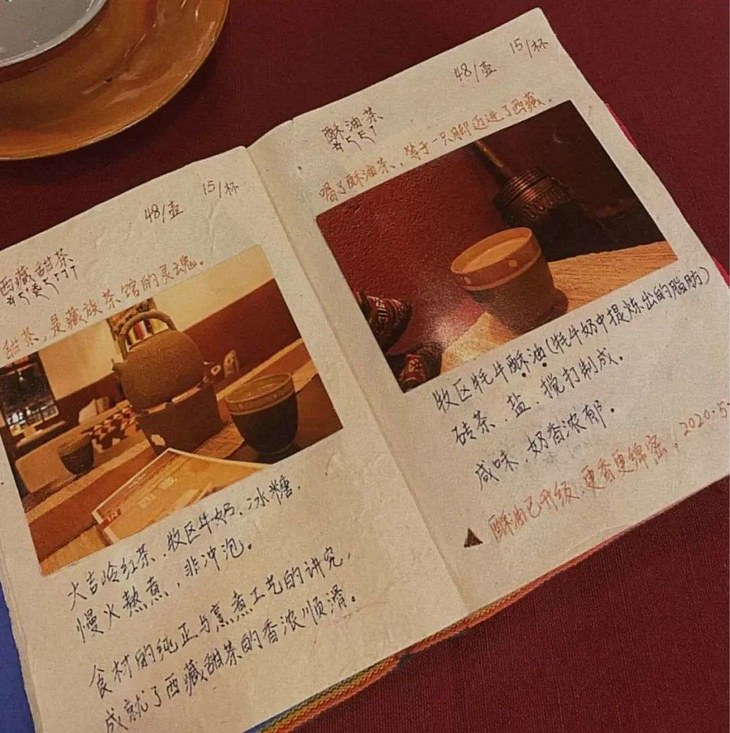 48/壶 15/杯
西藏甜茶
甜茶,是藏族茶馆的灵魂.
大吉岭红茶、牧区牛奶、冰糖.
慢火熬煮,非冲泡。
食材的纯正与熬煮工艺的讲究,
成就了西藏甜茶的香浓顺滑。
48/壶 15/杯
酥油茶
喝了酥油茶、等于一只脚迈进了西藏.
牧区牦牛酥油(牦牛奶中提炼出的脂肪)
砖茶、盐、搅打制成.
咸味、奶香浓郁.
酥油已升级,更香更绵密, 2020.5.